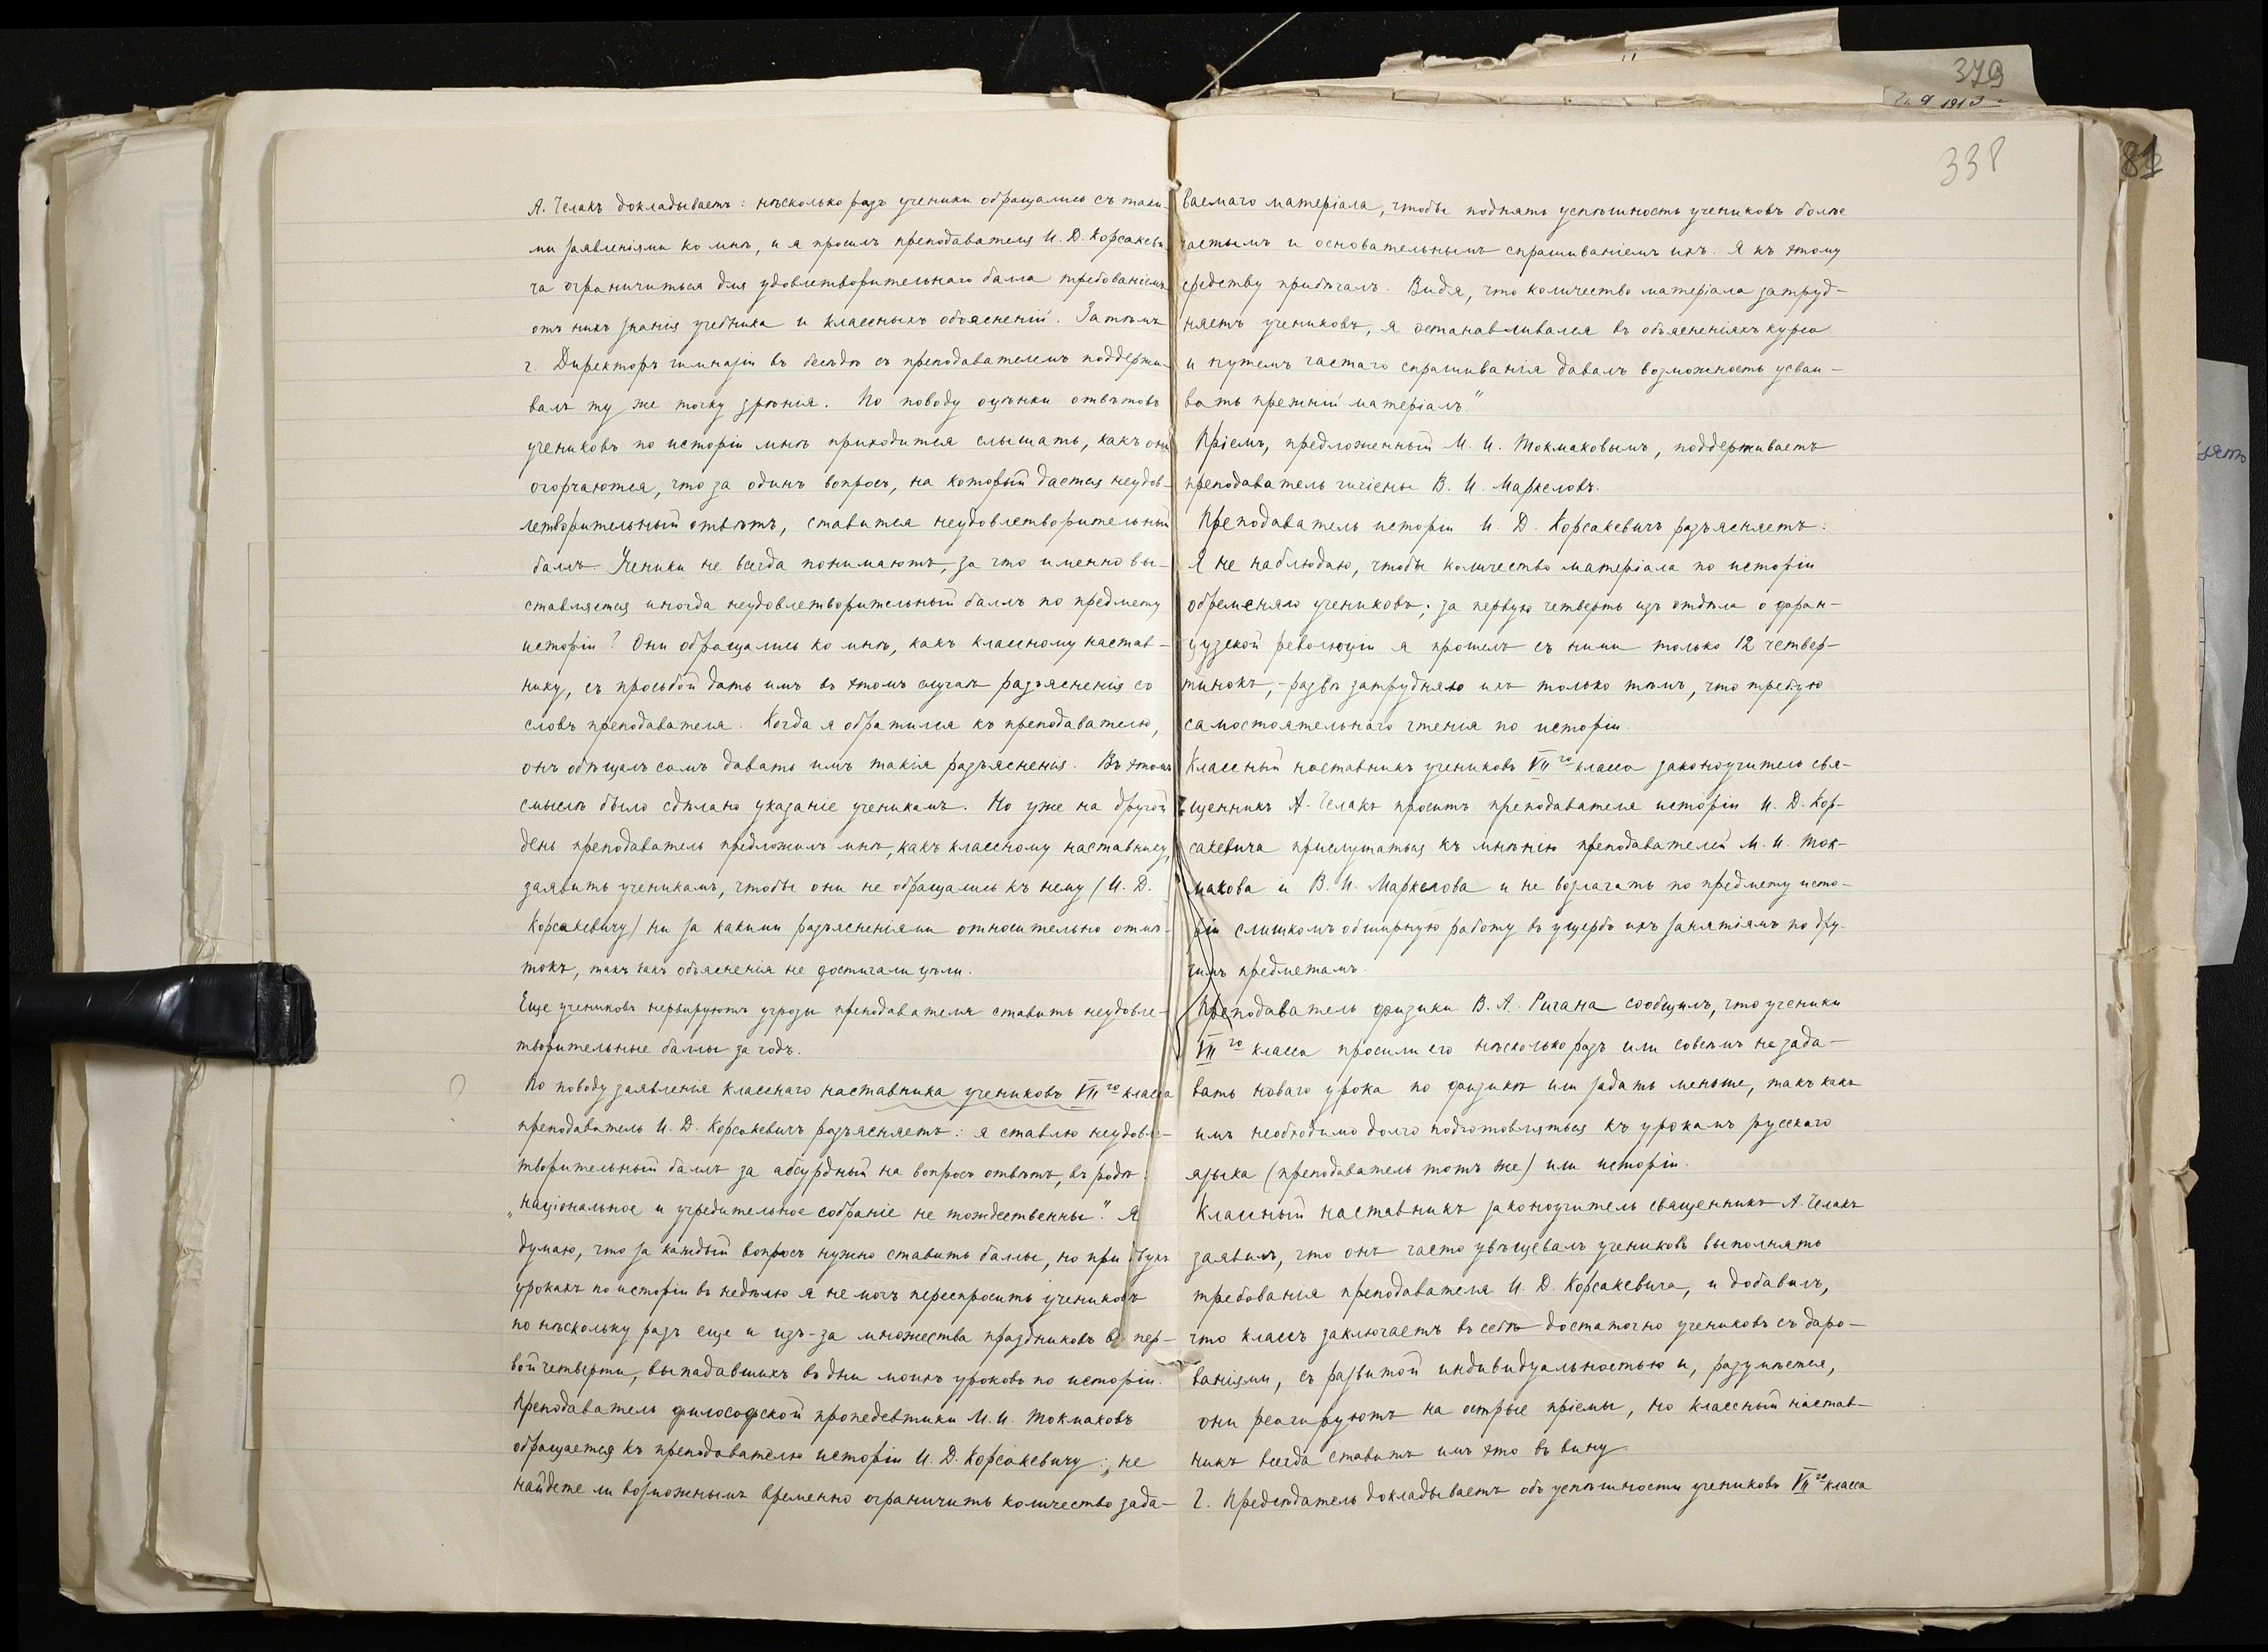 А. Челакъ докладываетъ: нѣсколько разъ ученики обращались съ таки-
ми заявленіями ко мнѣ, и я просилъ преподавателя И. Д. Корсакеви-
ча ограничиться для удовлетворительнаго балла требованіемъ
отъ нихъ знанія учебника и классныхъ объясненій. Затѣмъ
г. Директоръ гимназіи въ бесѣдѣ съ преподавателемъ поддержи-
валъ ту же точку зрѣнія. По поводу оцѣнки отвѣтовъ
учениковъ по исторіи мнѣ приходится слышать, какъ они
огорчаются, что за одинъ вопросъ, на который дается неудов-
летворительный отвѣтъ, ставится неудовлетворительный
баллъ. Ученики не всегда понимаютъ, за что именно вы-
ставляется иногда неудовлетворительный баллъ по предмету
исторіи? Они обращались ко мнѣ, какъ классному настав-
нику, съ просьбой дать имъ въ этомъ случаѣ разъясненія со
словъ преподавателя. Когда я обратился къ преподавателю,
онъ обѣщалъ самъ давать имъ такія разъясненія. Въ этомъ
смыслѣ было сдѣлано указаніе ученикамъ. Но уже на другой
день преподаватель предложилъ мнѣ, какъ классному наставнику,
заявить ученикамъ, чтобы они не обращались къ нему (И. Д.
Корсакевичу) ни за какими разъясненіями относительно отмѣ-
токъ, такъ какъ объясненія не достигали цѣли.
Еще учениковъ нервируютъ угрозы преподавателя ставить неудовле-
творительные баллы за годъ.
По поводу заявленія класснаго наставника учениковъ VII го класса
преподаватель И. Д. Корсакевичъ разъясняетъ: я ставлю неудовле-
творительный баллъ за абсурдный на вопросъ отвѣтъ, въ родѣ:
„національное и учредительное собраніе не тождественны." Я
думаю, что за каждый вопросъ нужно ставить баллы, но при двухъ
урокахъ по исторіи въ недѣлю я не могъ переспросить учениковъ
по нѣскольку разъ еще и изъ-за множества праздниковъ въ пер-
вой четверти, выпадавшихъ въ дни моихъ уроковъ по исторіи.
Преподаватель философской пропедевтики М. И. Токмаковъ
обращается къ преподавателю исторіи И. Д. Корсакевичу: „не
найдете ли возможнымъ временно ограничить количество зада-
379
1913
338
81
ваемаго матеріала, чтобы поднять успѣшность учениковъ болѣе
частымъ и основательнымъ спрашиваніемъ ихъ. Я къ этому
средству прибѣгалъ. Видя, что количество матеріала затруд-
няетъ учениковъ, я останавливался въ объясненіяхъ курса
и путемъ частаго спрашиванія давалъ возможность усваи-
вать прежній матеріалъ."
Пріемъ, предложенный М. И. Токмаковымъ, поддерживаетъ
преподаватель гигіены В. И. Маркеловъ.
Преподаватель исторіи И. Д. Корсакевичъ разъясняетъ:
Я не наблюдаю, чтобы количество матеріала по исторіи
обременяло учениковъ; за первую четверть изъ отдѣла о фран-
цузской революціи я прошелъ съ ними только 12 четвер-
тинокъ, – развѣ затрудняю ихъ только тѣмъ, что требую
самостоятельнаго чтенія по исторіи.
Классный наставникъ учениковъ VII го класса законоучитель свя-
щенникъ А. Челакъ проситъ преподавателя исторіи И. Д. Кор-
сакевича прислушаться къ мнѣнію преподавателей М. И. Ток-
макова и В. И. Маркелова и не возлагать по предмету исто-
ріи слишкомъ обширную работу въ ущербъ ихъ занятіямъ по дру-
гимъ предметамъ.
Преподаватель физики В. А. Ригана сообщилъ, что ученики
VII го класса просили его нѣсколько разъ или совсѣмъ не зада-
вать новаго урока по физикѣ или задать меньше, такъ какъ
имъ необходимо долго подготовляться къ урокамъ русскаго
языка (преподаватель тотъ же) или исторіи.
Классный наставникъ законоучитель священникъ А. Челакъ
заявилъ, что онъ часто увѣщевалъ учениковъ выполнять
требованія преподавателя И. Д. Корсакевича, и добавилъ,
что классъ заключаетъ въ себѣ достаточно учениковъ съ даро-
ваніями, съ развитой индивидуальностью и, разумѣется,
они реагируютъ на острые пріемы, но классный настав-
никъ всегда ставитъ имъ это въ вину.
Г. Предсѣдатель докладываетъ объ успѣшности учениковъ VII го класса